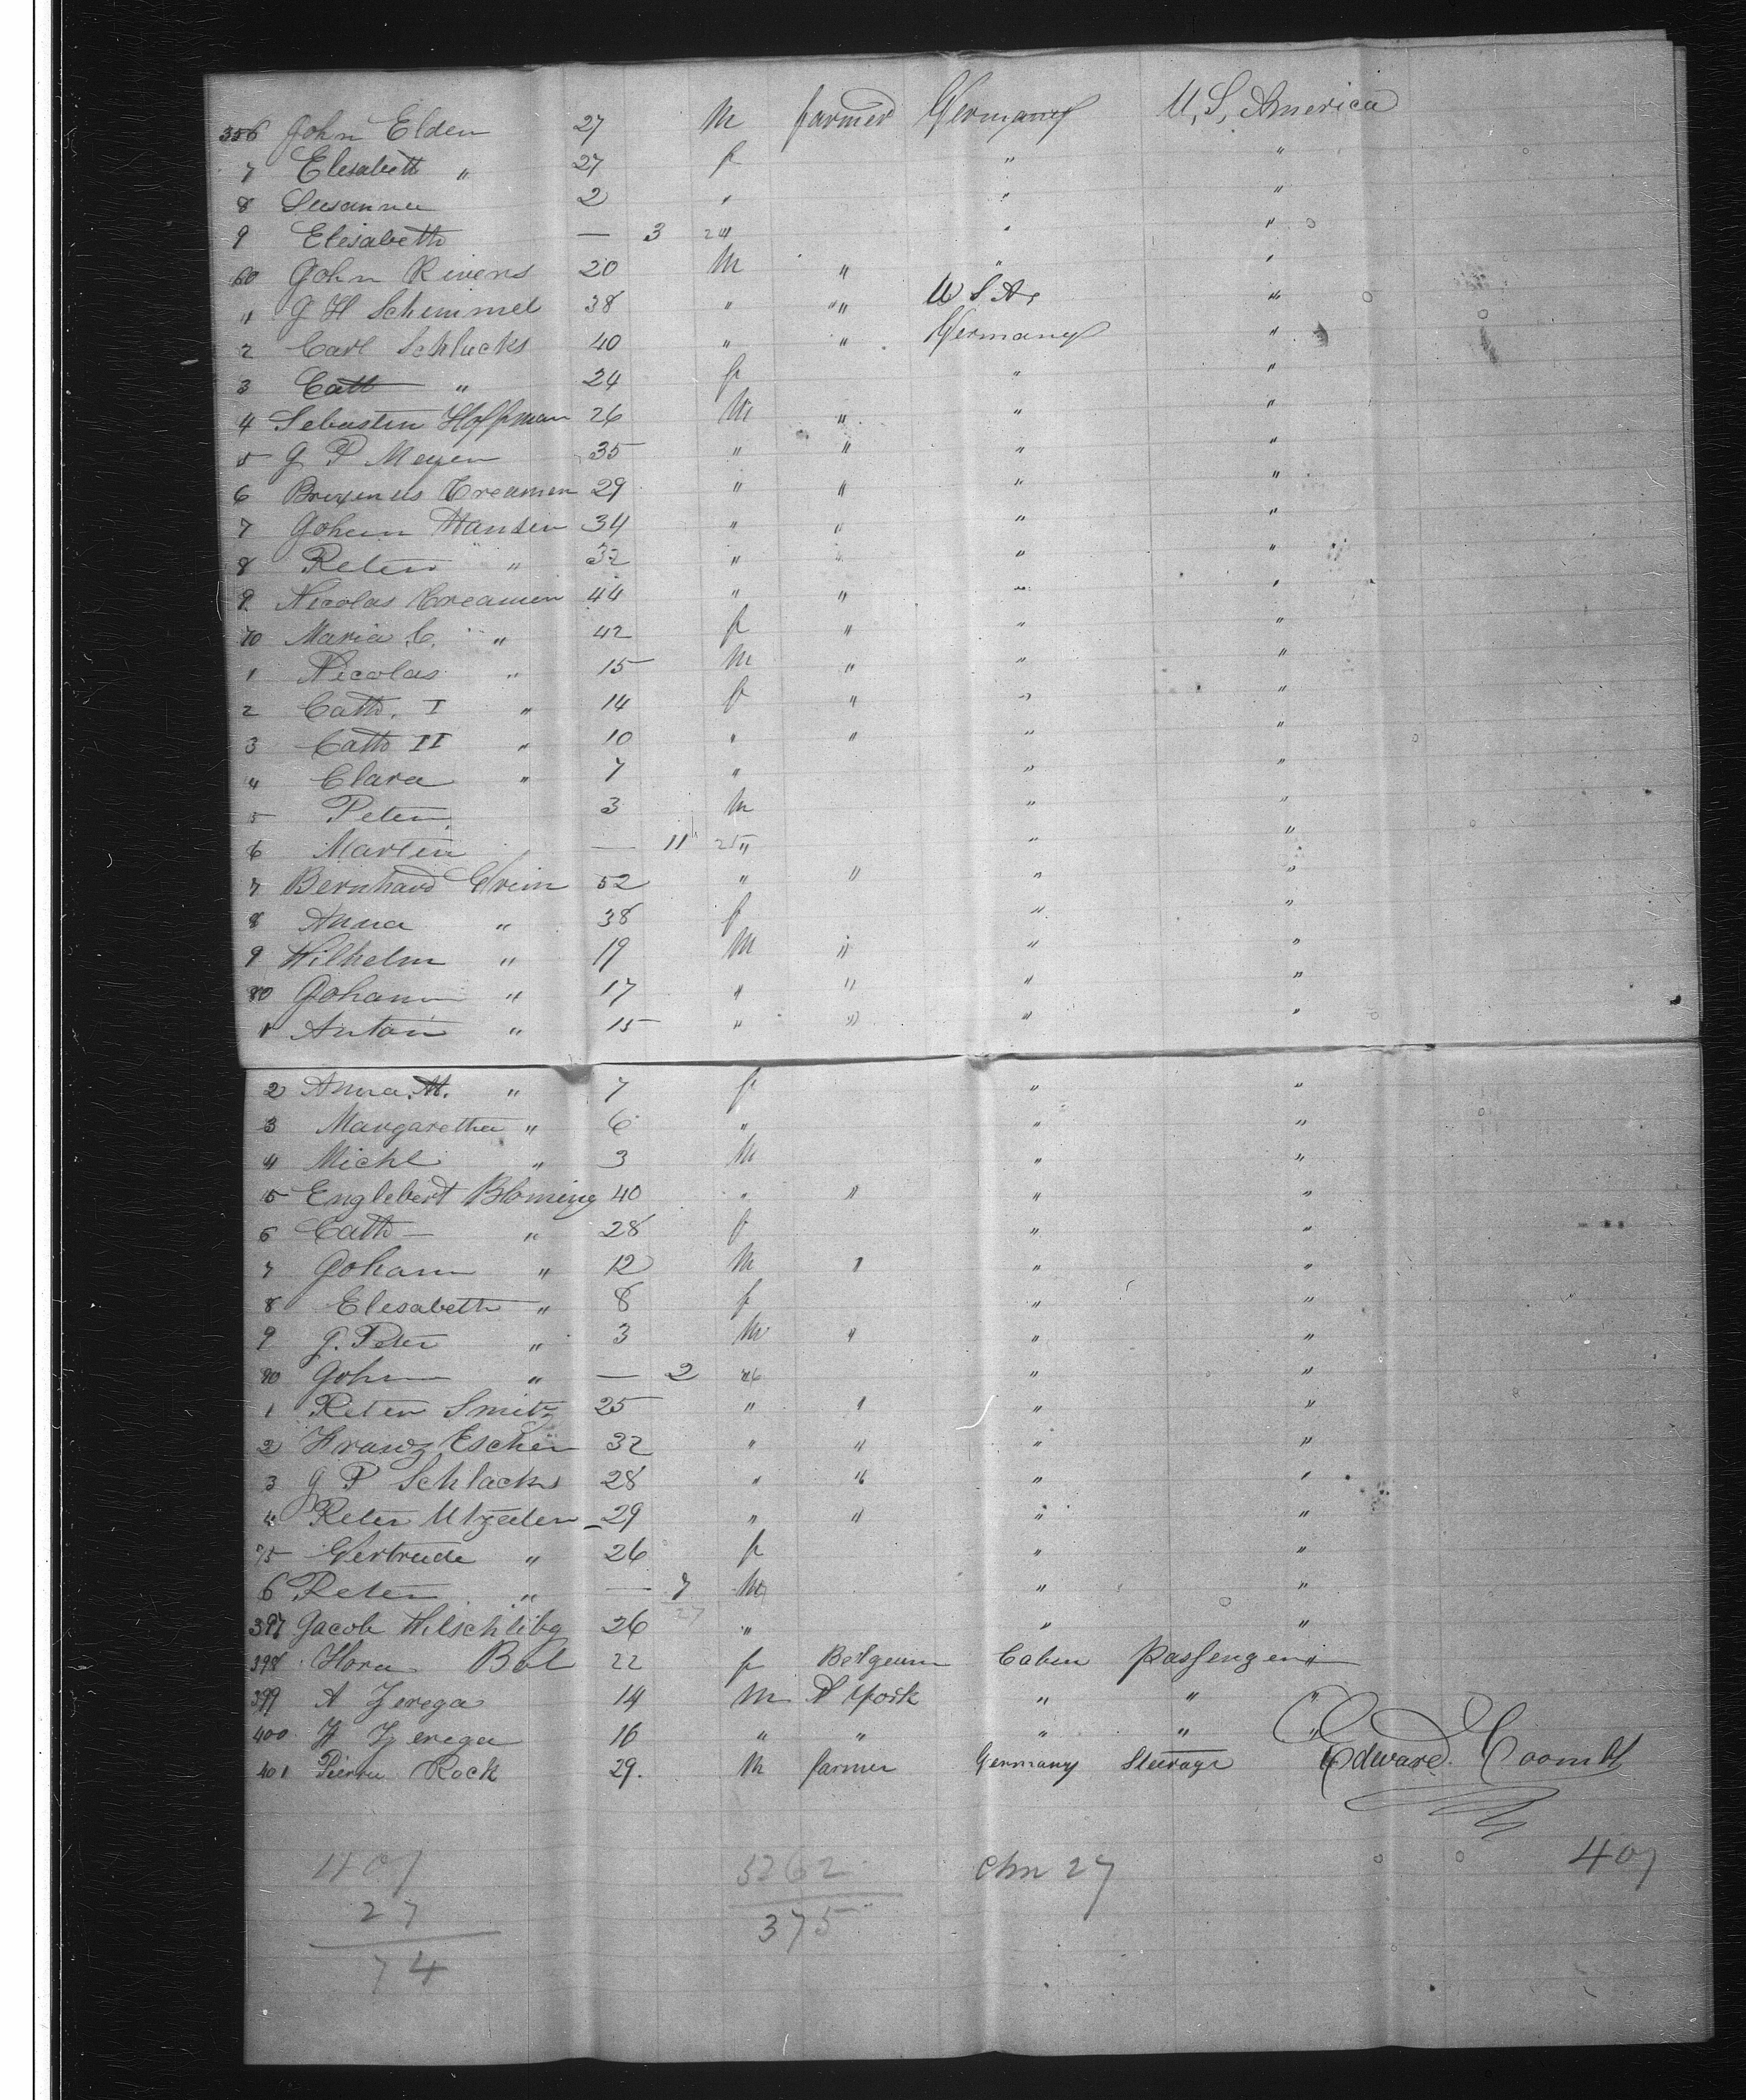 356 John Elden 27 M farmer Germany U, S, America
7 Elesabeth " 27 f " "
8 Susanna 2 " " "
9 Elisabeth — 3 24 " " "
60 John Rivers 20 M " " "
11 J H Schimmel 38 " " U S A. "
2 Carl Schlucks 40 " " Germany "
3 Cath " 24 f " "
4 Sebastin Hoffman 26 M " " "
5 J P Meyer 35 " " " "
6 Creamer 29 " " " "
7 Johann Hansen 34 " " " "
8 Peter " 32 " " " "
9 Nicolas Creamer 44 " " " "
70 Maria C. " 42 f " " "
1 Nicolas " 15 M " " "
2 Cath. I " 14 f " " "
3 Cath II " 10 " " " "
4 Clara " 7 " " "
5 Peter 3 M " "
6 Martin — 11 25 " " "
7 Bernhard 52 " " " "
8 Anna " 38 f " "
9 Wilhelm " 19 M " " "
80 Johann " 17 " " " "
1 Anton " 15 " " " "
2 Anna. M. " 7 f " "
3 Margaretha " 6 " " "
4 Michl " 3 M " "
5 Englebert Bloming 40 " " " "
6 Cath — " 28 f " "
7 Johann " 12 M " " "
8 Elesabeth " 8 f " "
9 J. Peter " 3 M " " "
90 John " — 2 26 " "
1 Peter Smitz 25 " " " "
2 Franz Escher 32 " " " "
3 J P Schlacks 28 " " " "
4 Peter Utzeler 29 " " " "
5 Gertrude " 26 f " "
6 Peter " — 7 M " "
27
397 Jacob 26 " " "
398 Flora Bol 22 f Belgeum Cabin Passenger "
399 A Zerega 14 M N York " " "
400 H Zerega 16 " " " " "
401 Pierre Rock 29. M farmer Germany Steerage Edward Coombs
407 3262 Chn 27 407
27 375
74